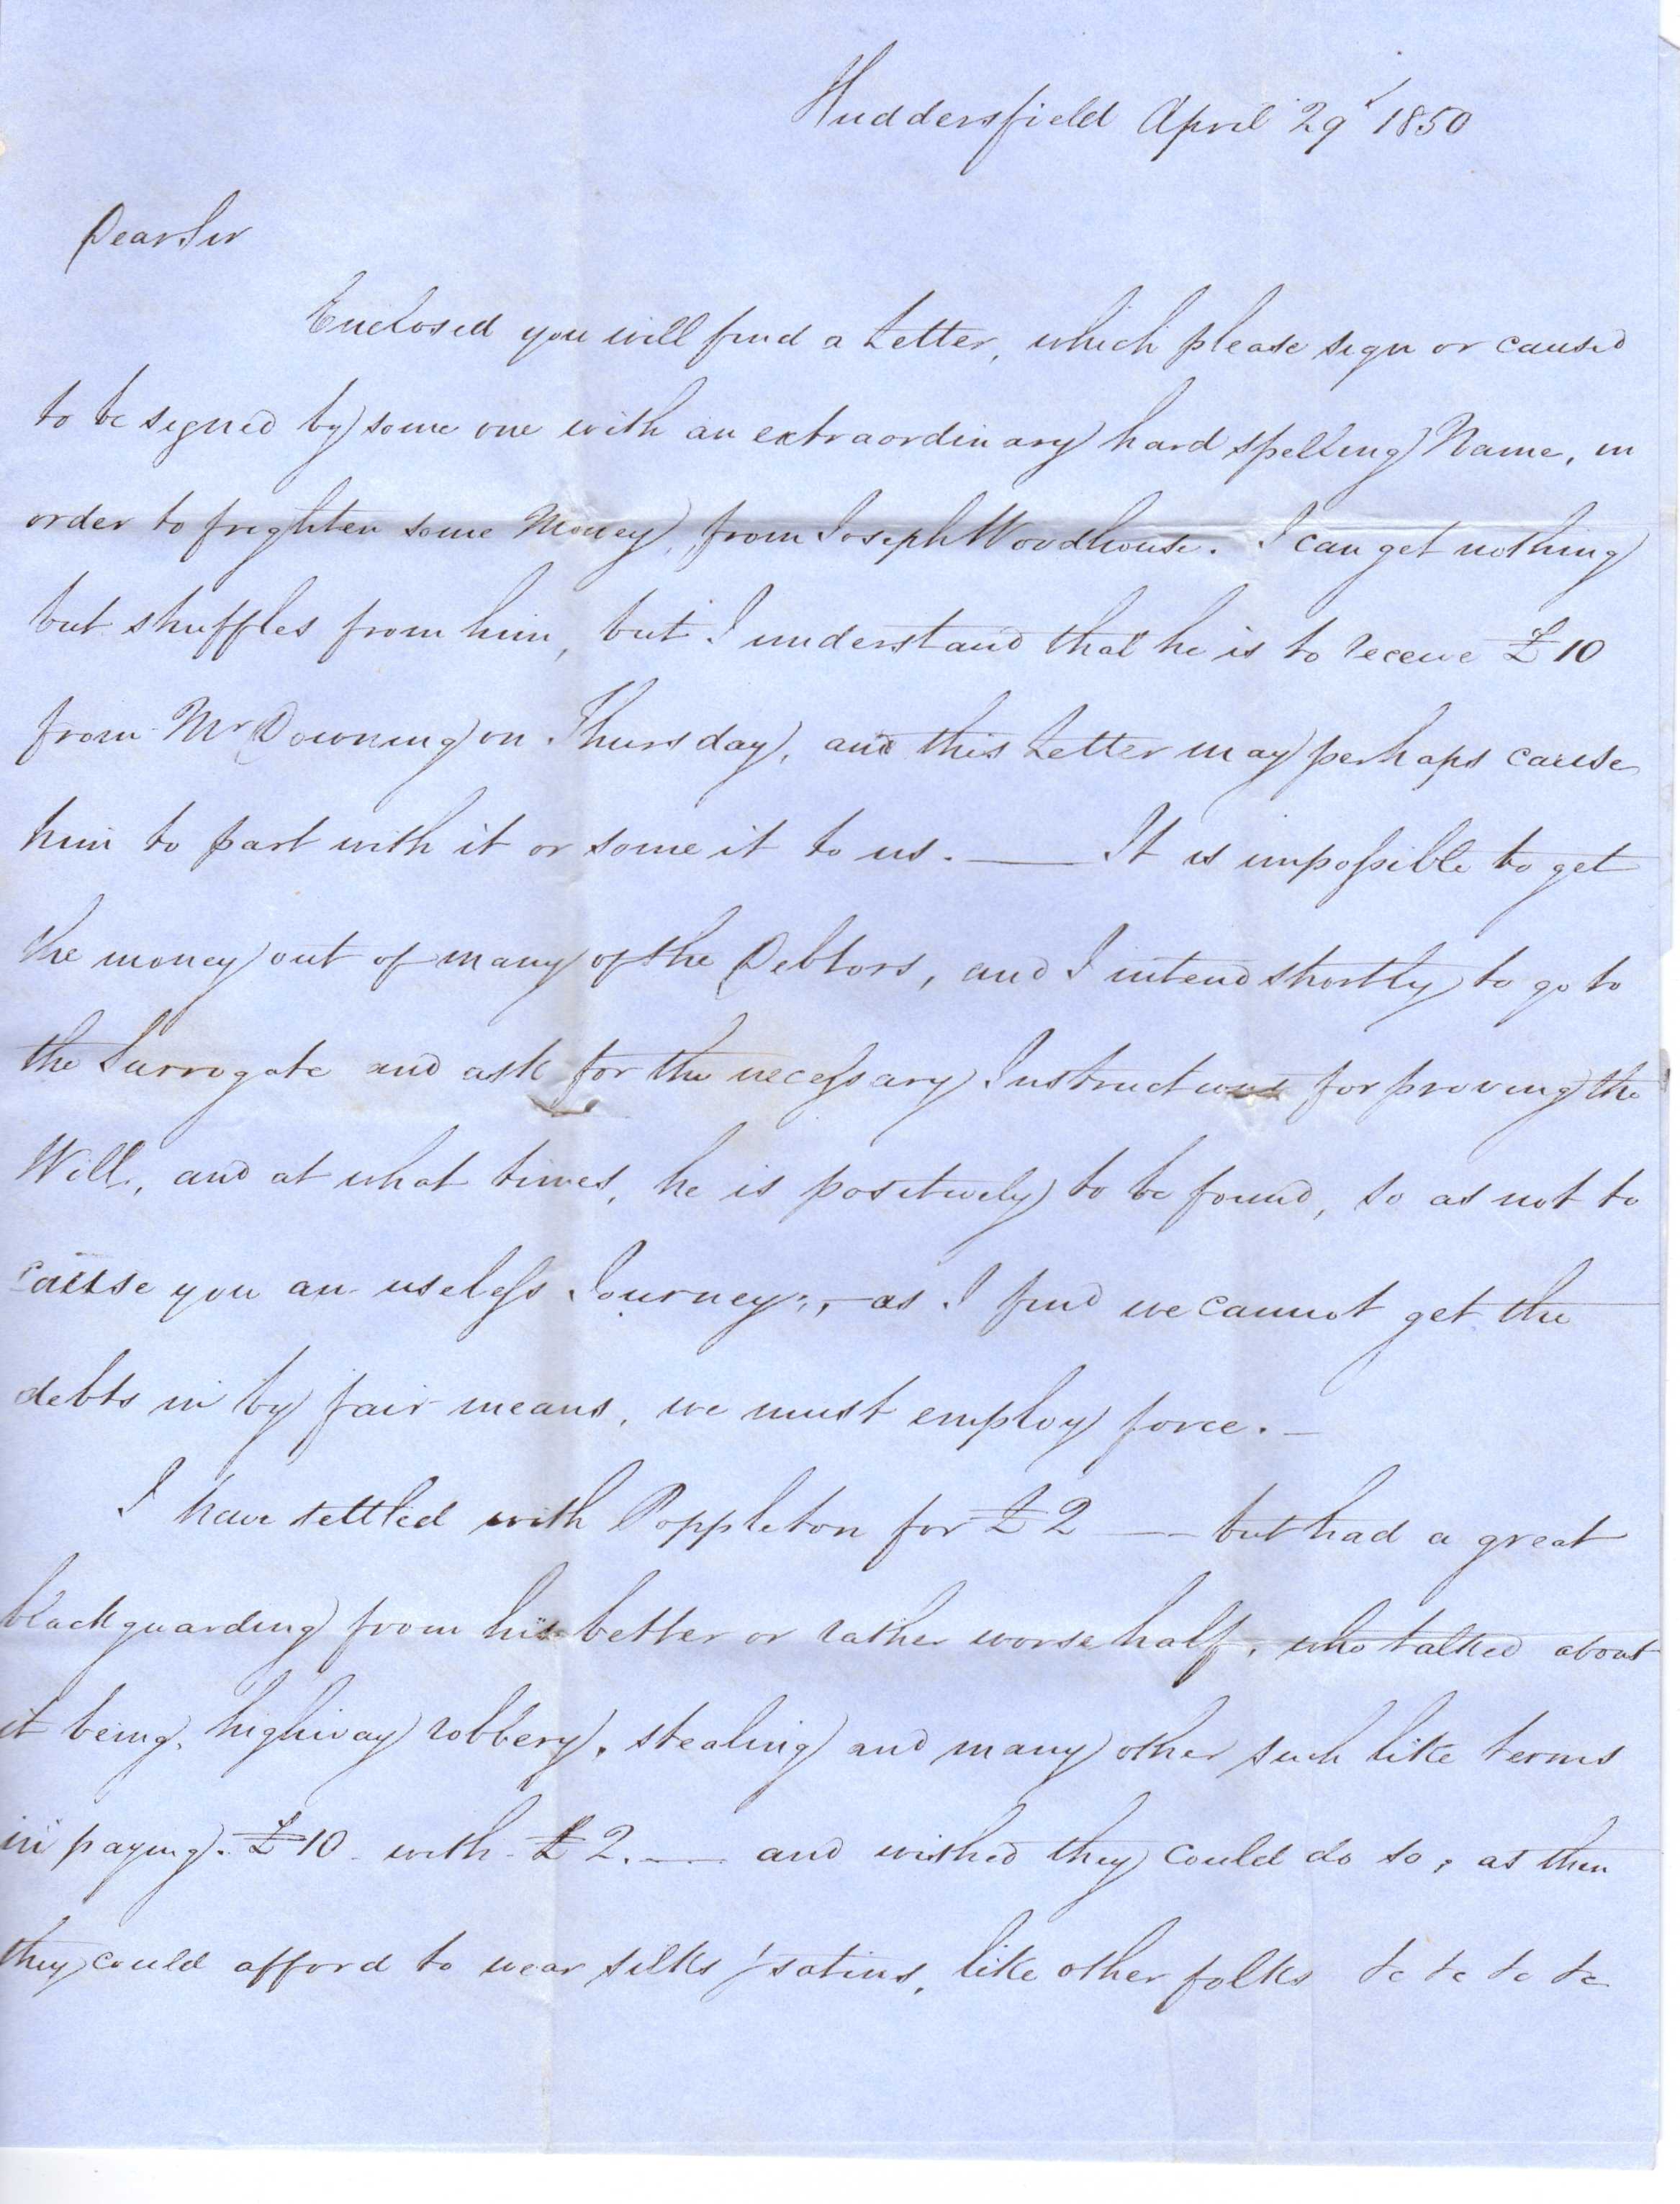 Huddersfield April 29 1850
Dear Sir
Enclosed you will find a Letter, which please sign or caused
to be signed by some one with an extraordinary hard spelling Name, in
order to frighten some Money, from Joseph Woodhouse. I can get nothing
but shuffles from him, but I understand that he is to receive £10
from Mr Downing on Thursday, and this Letter may perhaps cause
him to part with it or some it to us. — It is impossible to get
the money out of many of the Debtors, and I intend shortly to go to
the Surrogate and ask for the necessary Instructions for proving the
Will, and at what times, he is positively to be found, so as not to
cause you an useless Journey;, – as I find we cannot get the
debts in by fair means, we must employ force. –
I have settled with Poppleton for £2 — but had a great
blackguarding from his better or rather worse half, who talked about
it being, highway robbery, stealing and many other such like terms
in paying. £10 with £2. — and wished they could do so, as then
they could afford to wear silks & satins, like other folks &c &c &c &c